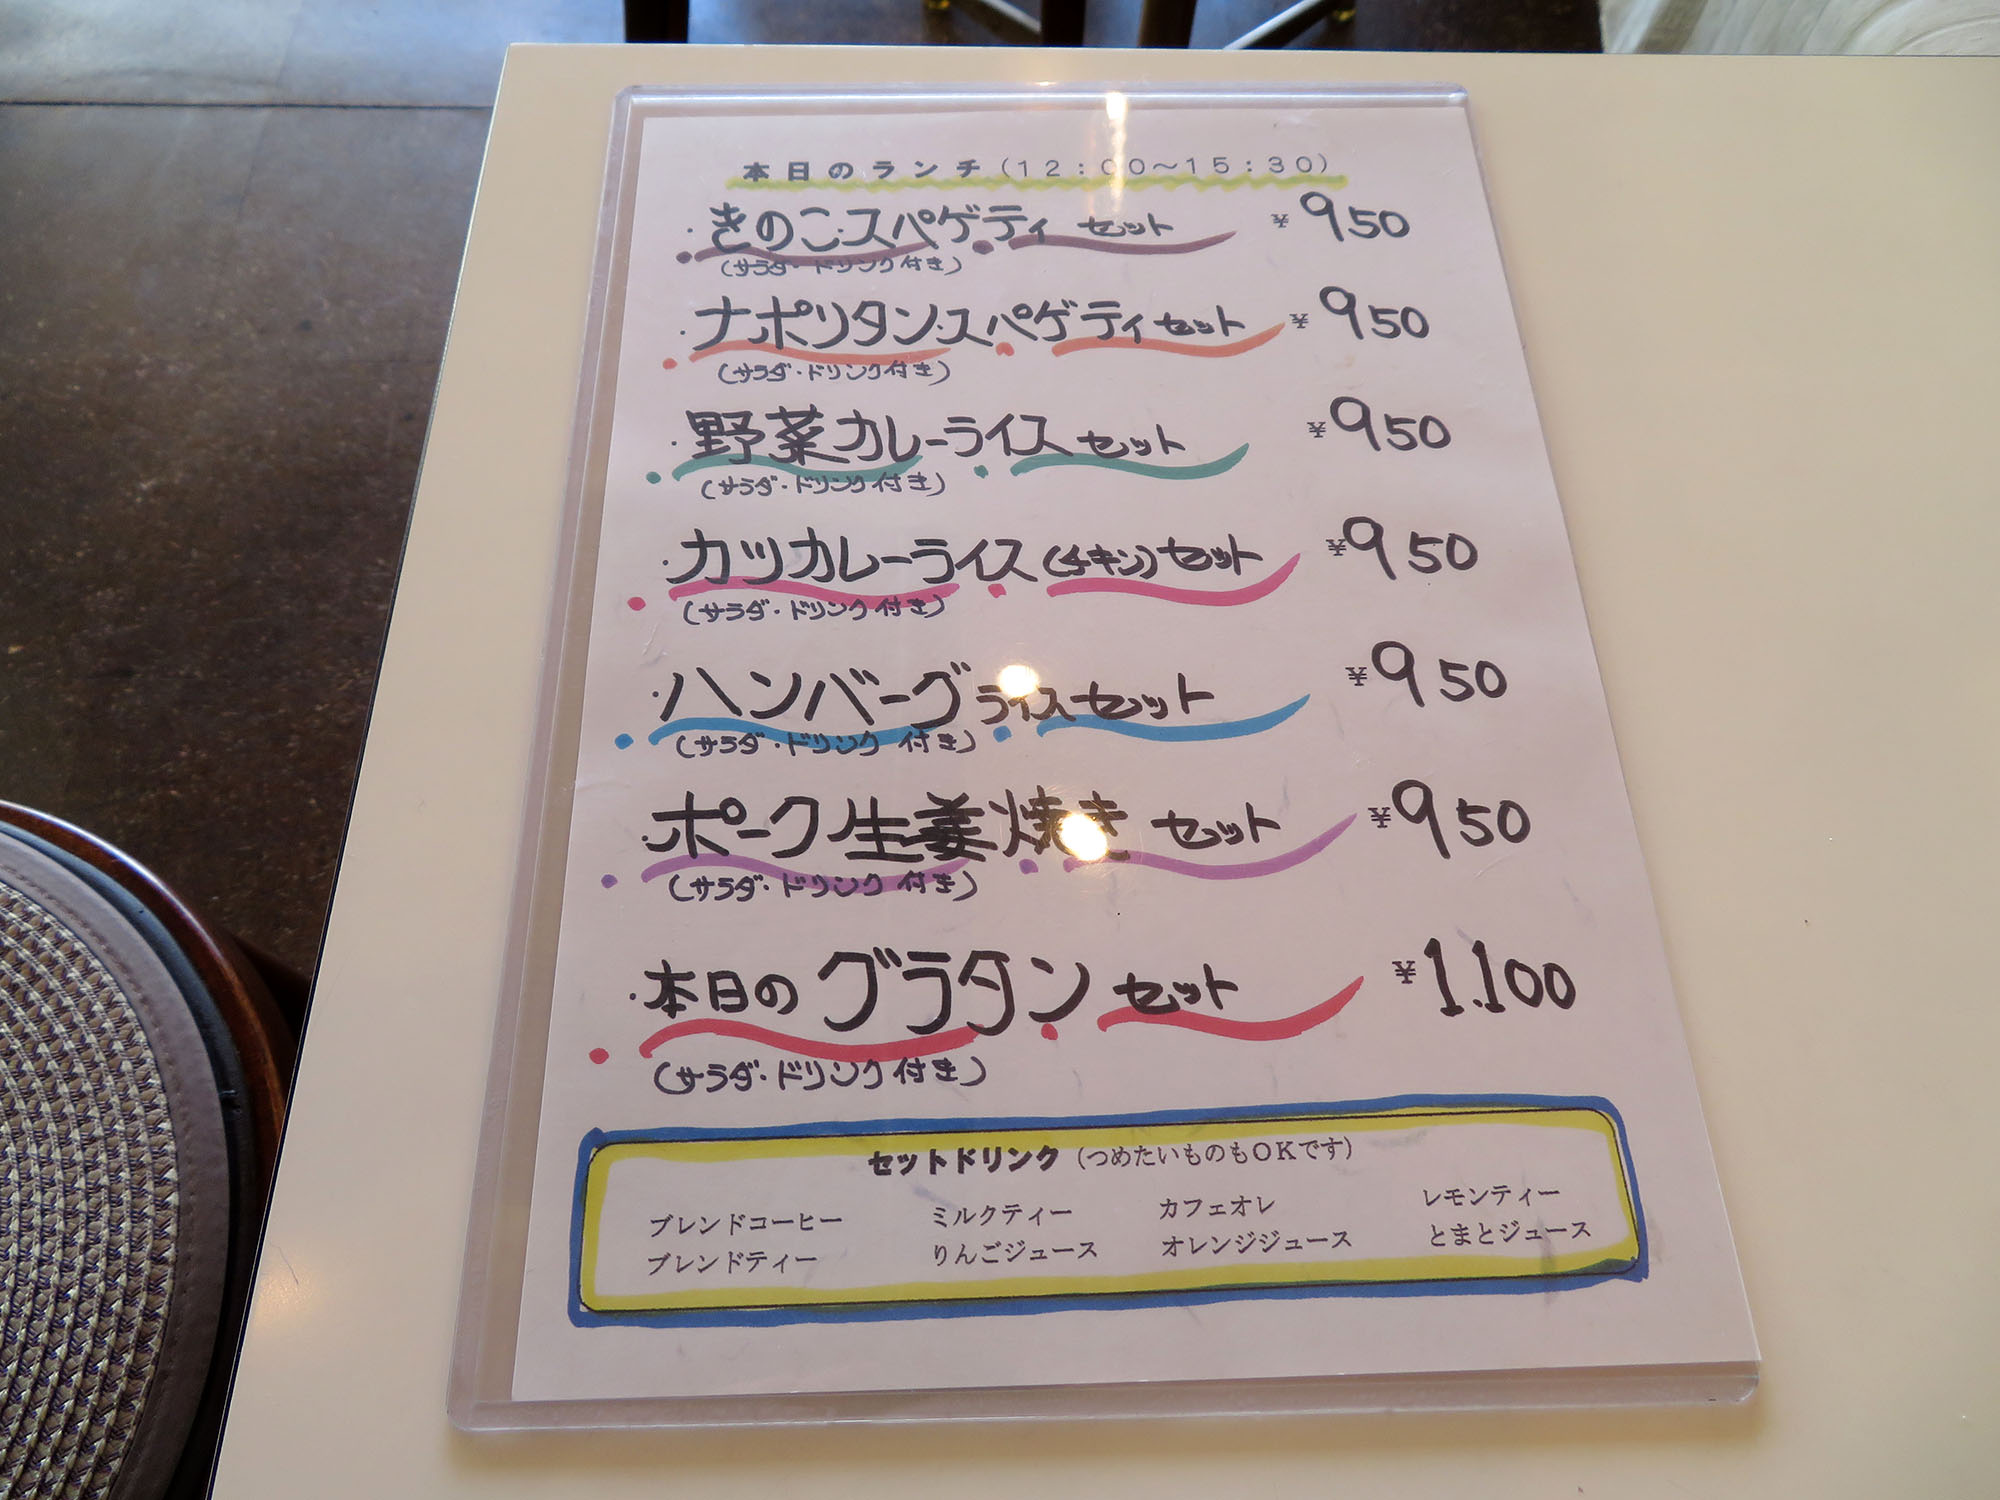 本日のランチ(12:00〜15:30)
・きのこスパゲティ セット ¥950
(サラダ・ドリンク付き)
・ナポリタンスパゲティセット ¥950
(サラダ・ドリンク付き)
・野菜カレーライス セット ¥950
(サラダ・ドリンク付き)
・カツカレーライス(チキン)セット ¥950
(サラダ・ドリンク付き)
・ハンバーグライスセット ¥950
(サラダ・ドリンク付き)
・ポーク生姜焼き セット ¥950
(サラダ・ドリンク付き)
・本日のグラタン セット ¥1.100
(サラダ・ドリンク付き)
セットドリンク(つめたいものもOKです)
ブレンドコーヒー ミルクティー カフェオレ レモンティー
ブレンドティー りんごジュース オレンジジュース とまとジュース